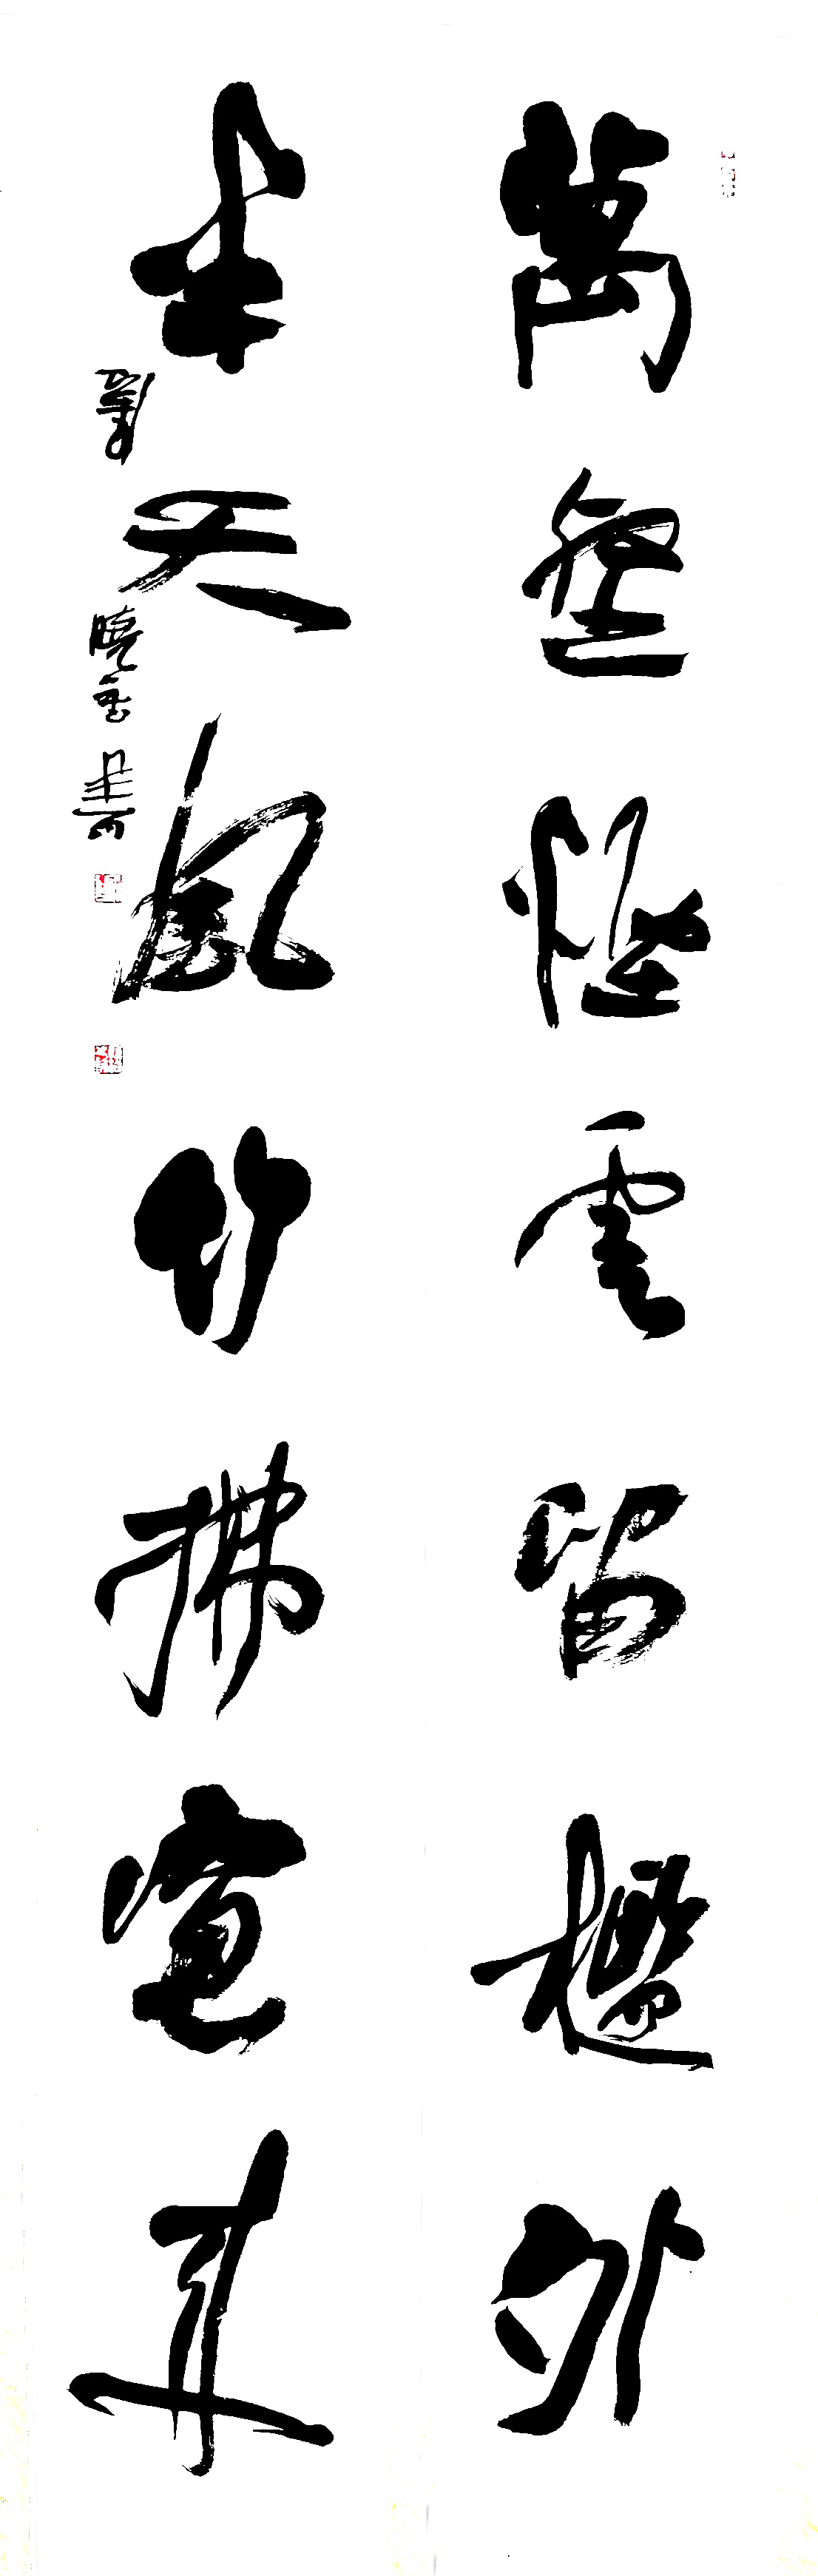 萬壑煙雲留檻外
半天風竹拂窻來
曉雲